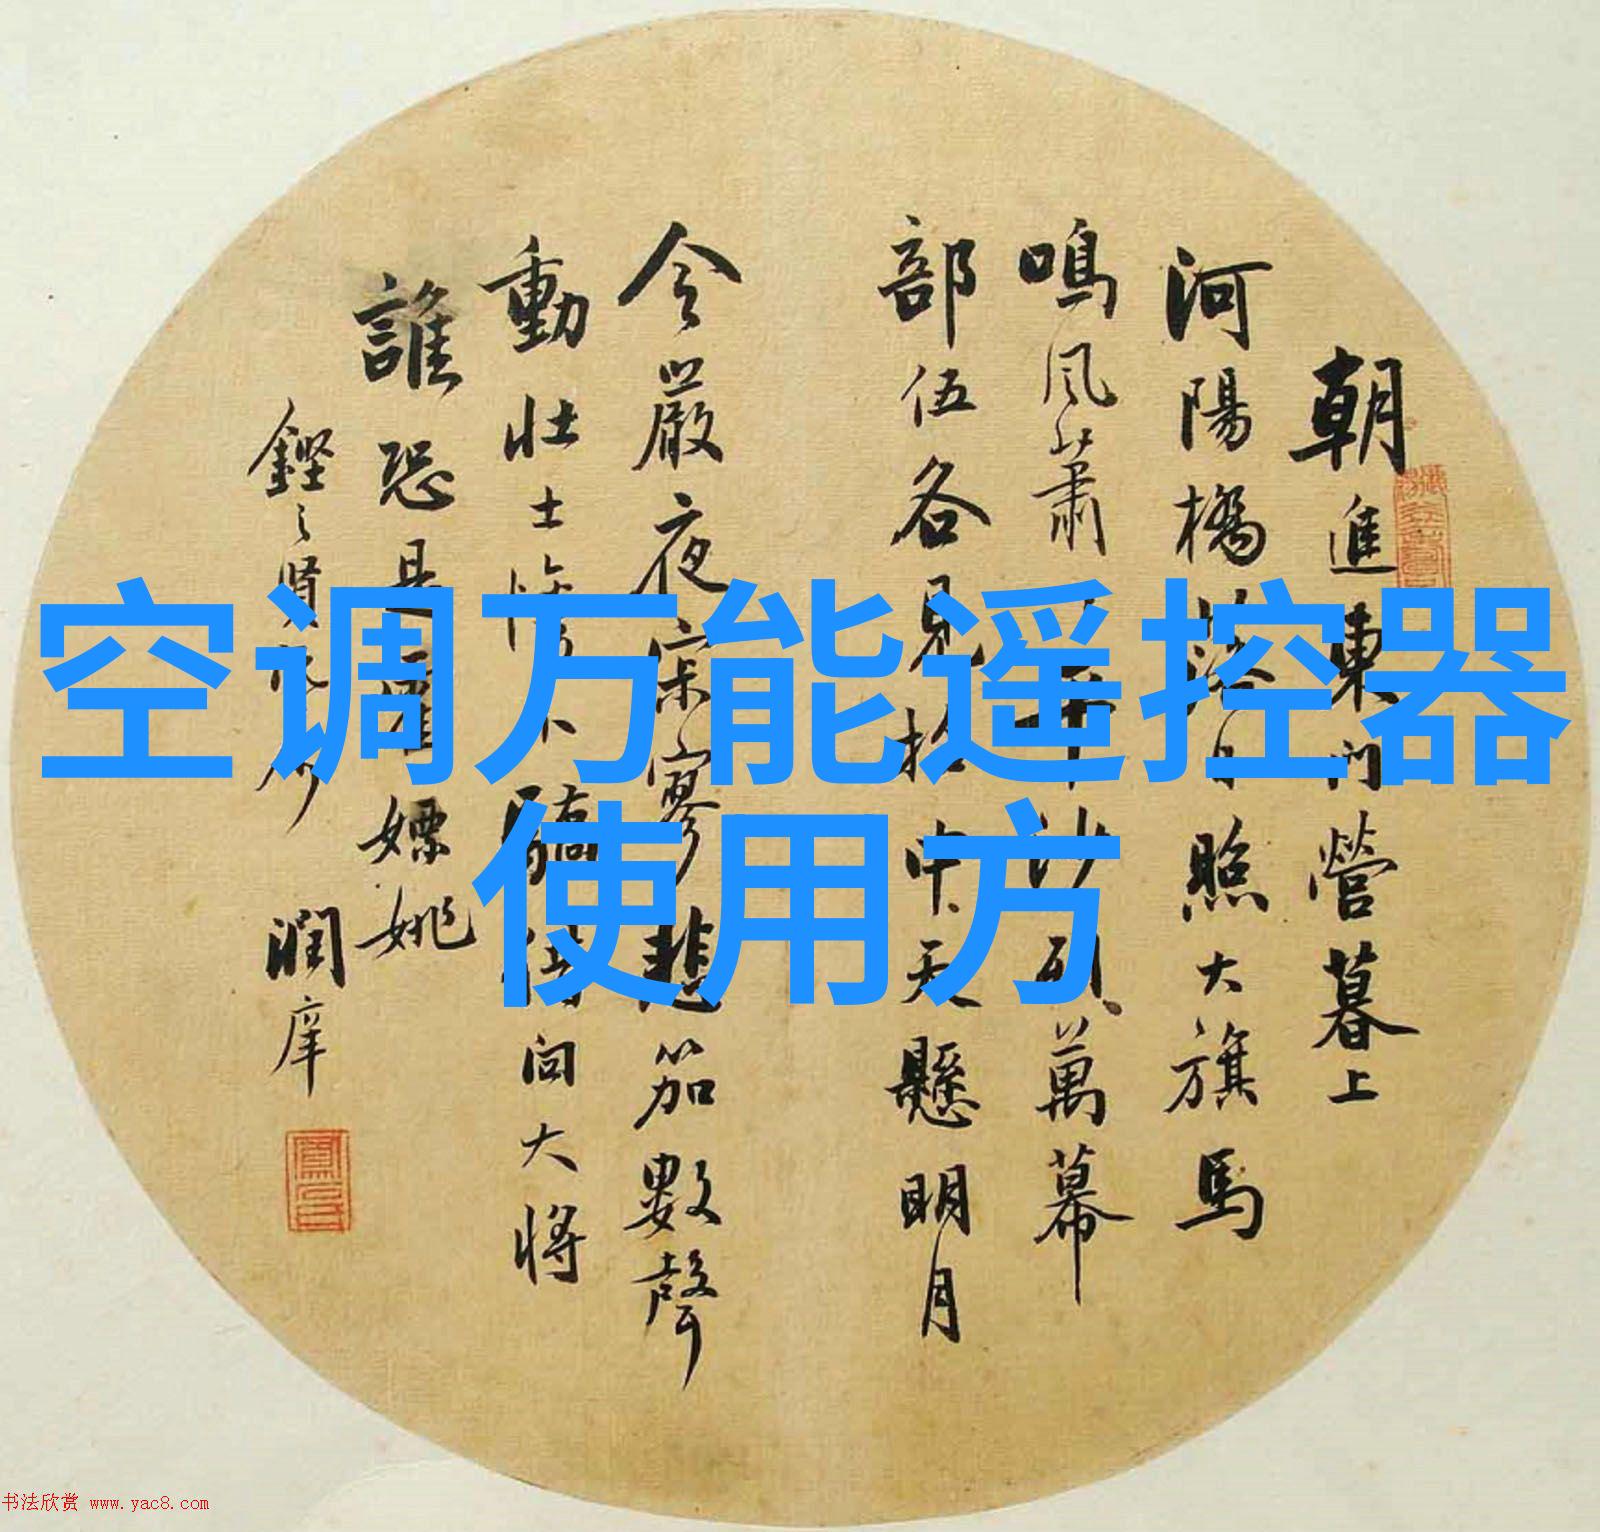 空调万能遥控器
使用方
朝進東門營暮上
河陽橋落日照大旗馬
鳴風蕭平沙列萬幕
部伍各見招中天懸明月
令嚴夜寂寥悲笳數聲
動壯士慘不驕借問大將
誰恐是霍嫖姚
潤庠
书法欣赏 www.yac8.com